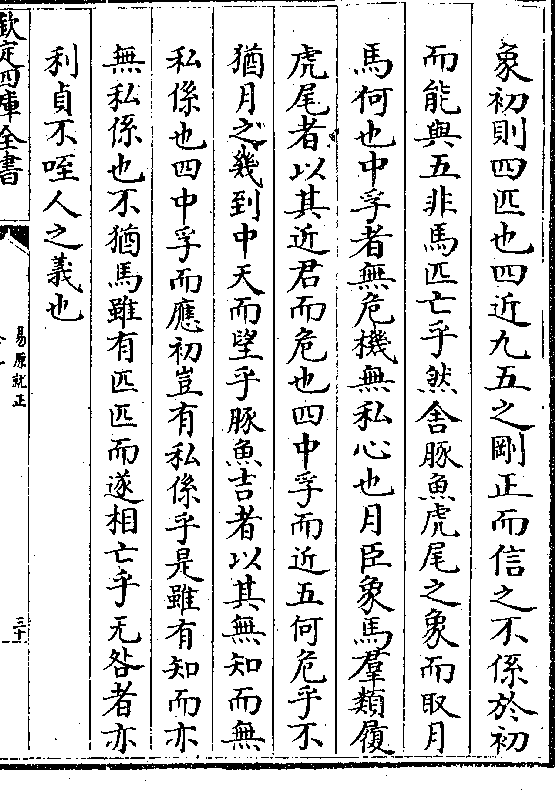 象初則四匹也四近九五之剛正而信之不係於初
而能與五非馬匹亡乎然舍豚魚虎尾之象而取月
馬何也中孚者無危機無私心也月臣象馬羣類履
虎尾者以其近君而危也四中孚而近五何危乎不
猶月之幾到中天而望乎豚魚吉者以其無知而無
私係也四中孚而應初豈有私係乎是雖有知而亦
無私係也不猶馬雖有匹匹而遂相亡乎无咎者亦
利貞不咥人之義也
欽定四庫全書
易原就正
三十